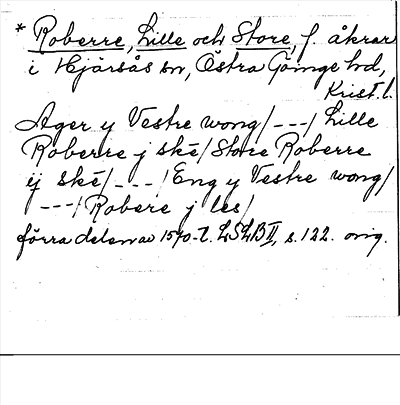 * Roberre, Lille och Store, f. åkrar
i Hjärsås sn, Östra Göinge hd,
Krist. l.
Ager y Vestre wong/---/ Lille
Roberre j ské/ Store Roberre
ij ské/---/ Eng y Vestre wong/
/---/ Robere j les/
förra delen av 1570-t. LSLB II, s. 122. orig.